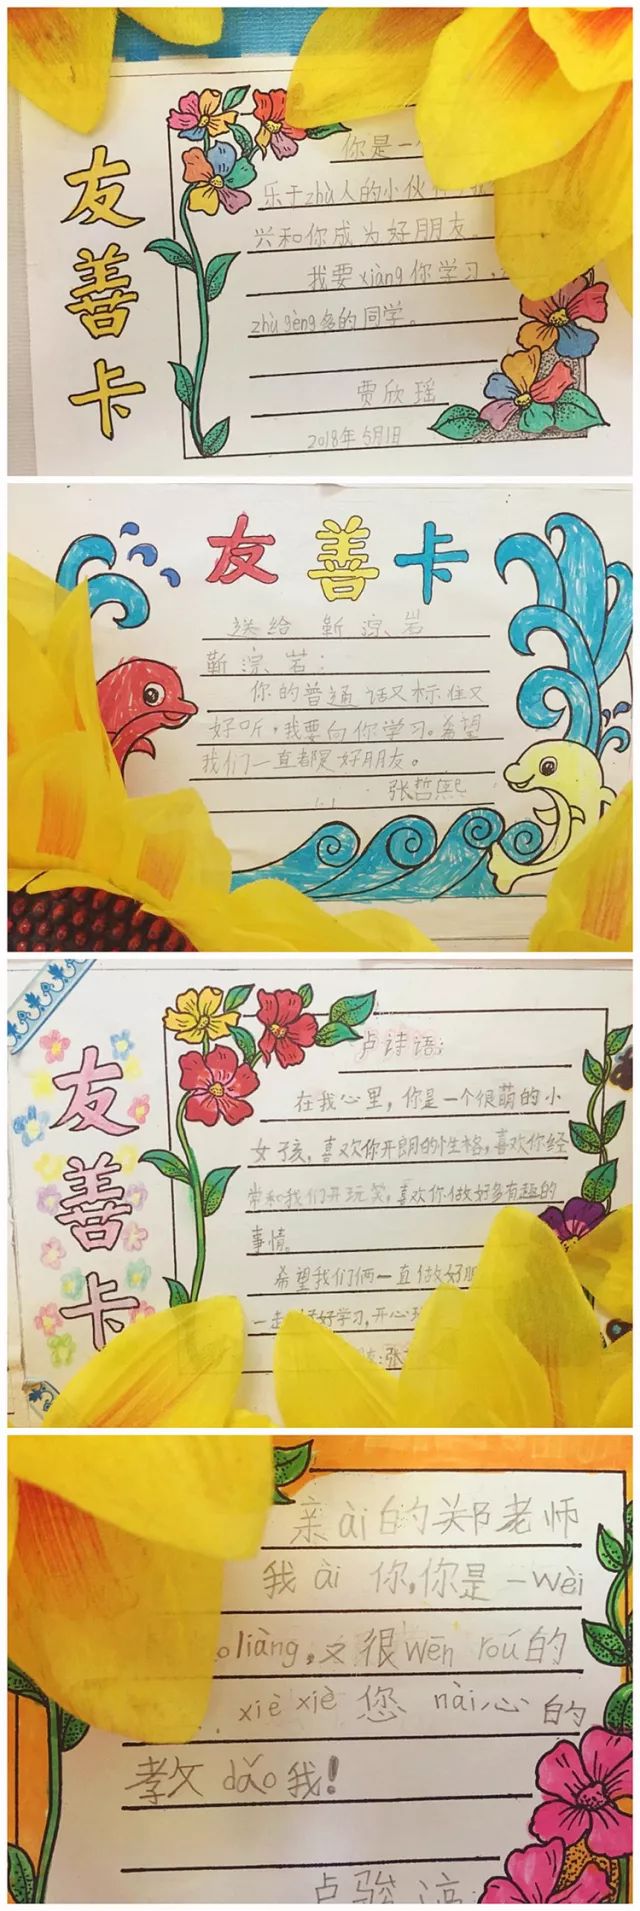 友善卡
你是一个
乐于zhù人的小伙伴
兴和你成为好朋友。
我要xiàng你学习，
zhù gèng多的同学。
贾欣瑶
2018年5月1日
友善卡
送给 靳淙岩
靳淙岩：
你的普通话又标准又
好听，我要向你学习。希望
我们一直都是好朋友。
张哲熙
友善卡
卢诗语：
在我心里，你是一个很萌的小
女孩，喜欢你开朗的性格，喜欢你经
常和我们开玩笑，喜欢你做好多有趣的
事情。
希望我们俩一直做好朋
一起好好学习，开心
张
亲ài的郑老师
我ài你，你是一wèi
liàng，又很wēn róu的
xiè xiè您 nài心的
教dǎo我！
卢骏